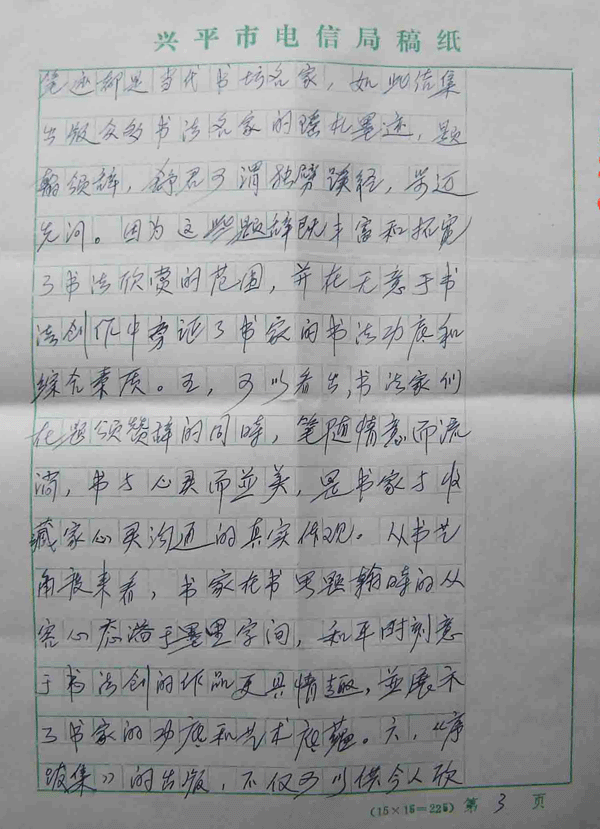 兴平市电信局稿纸
笔迹都是当代书坛名家，如此结集
出版众多书法名家的手札墨迹，题
翰颂辞，薛君可谓独劈蹊径，步迈
先河。因为这些题辞既丰富和拓宽
了书法欣赏的范围，并在无意于书
法创作中旁证了书家的书法功底和
综合素质。五，可以看出，书法家们
在题颂赞辞的同时，笔随情意而流
淌，书与心灵而並美，是书家与收
藏家心灵沟通的真实体现。从书艺
角度来看，书家在书写题翰時的从
容心态潜于墨里字间，和平时刻意
于书法创的作品更具情趣，並展示
了书家的功底和艺术底蕴。六，《序
跋集》的出版，不仅可以供今人欣
(15×15=225) 第 3 页